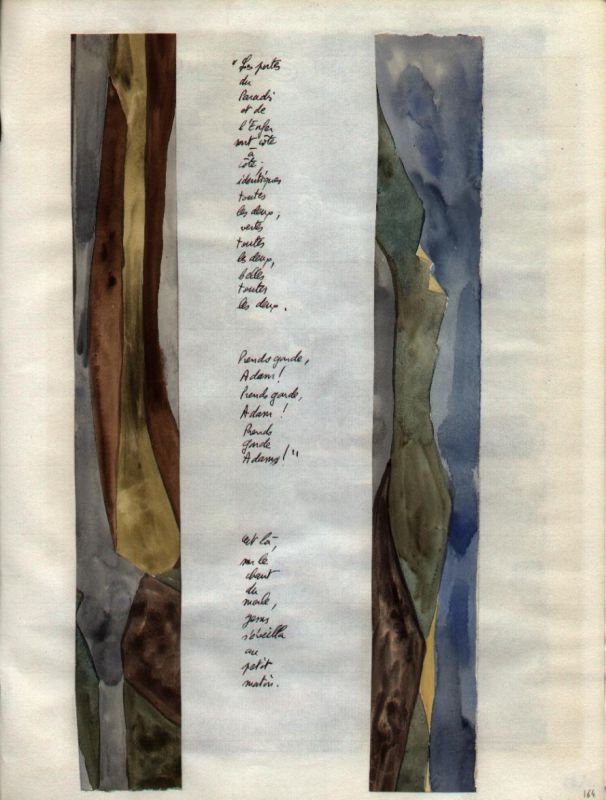 "Les portes
du
Paradis
et de
l'Enfer
sont côte
à
côte;
identiques
toutes
les deux,
vertes
toutes
les deux,
belles
toutes
les deux.
Prends garde,
Adam!
Prends garde,
Adam!
Prends
garde
Adam!"
et là,
sur le
chant
du
merle,
Jésus
s'éveilla
au
petit
matin.
164